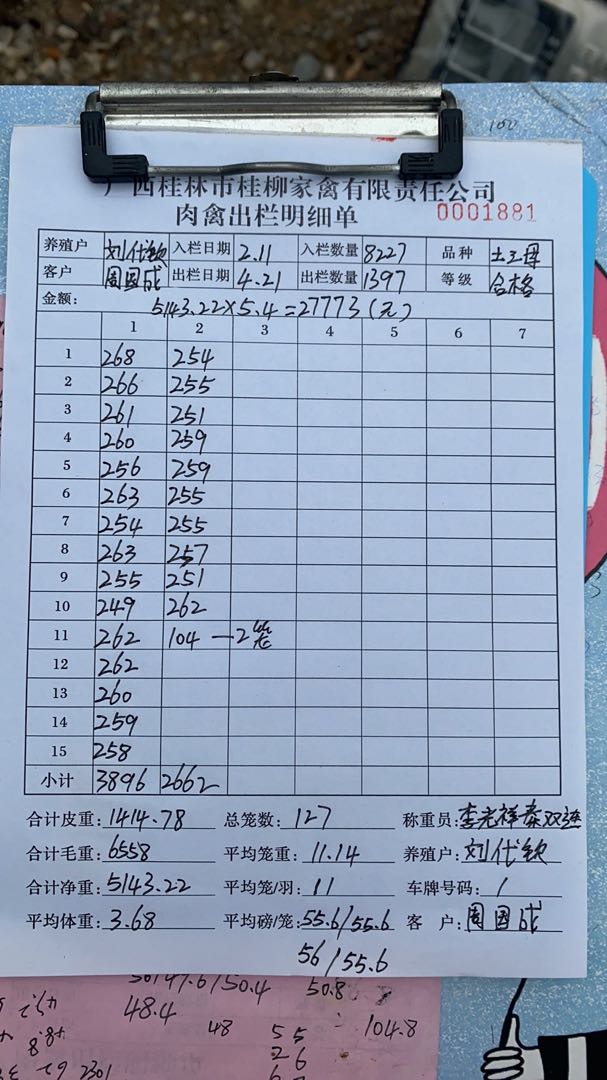 100
广西桂林市桂柳家禽有限责任公司
肉禽出栏明细单 0001881
养殖户 刘代钦 入栏日期 2.11 入栏数量 8227 品种 土二
客户 周国成 出栏日期 4.21 出栏数量 1397 等级 合格
金额: 5143.22×5.4=27773(元)
1 2 3 4 5 6 7
1 268 254
2 266 255
3 261 251
4 260 259
5 256 259
6 263 255
7 254 255
8 263 257
9 255 251
10 249 262
11 262 104 —2笼
12 262
13 260
14 259
15 258
小计 3896 2662
合计皮重: 1414.78 总笼数: 127 称重员: 李光祥秦双连
合计毛重: 6558 平均笼重: 11.14 养殖户: 刘代钦
合计净重: 5143.22 平均笼/羽: 11 车牌号码: /
平均体重: 3.68 平均磅/笼: 55.6/55.6 客户: 周国成
56/55.6
50.4 50.8
48.4 48 55 104.8
26
2301